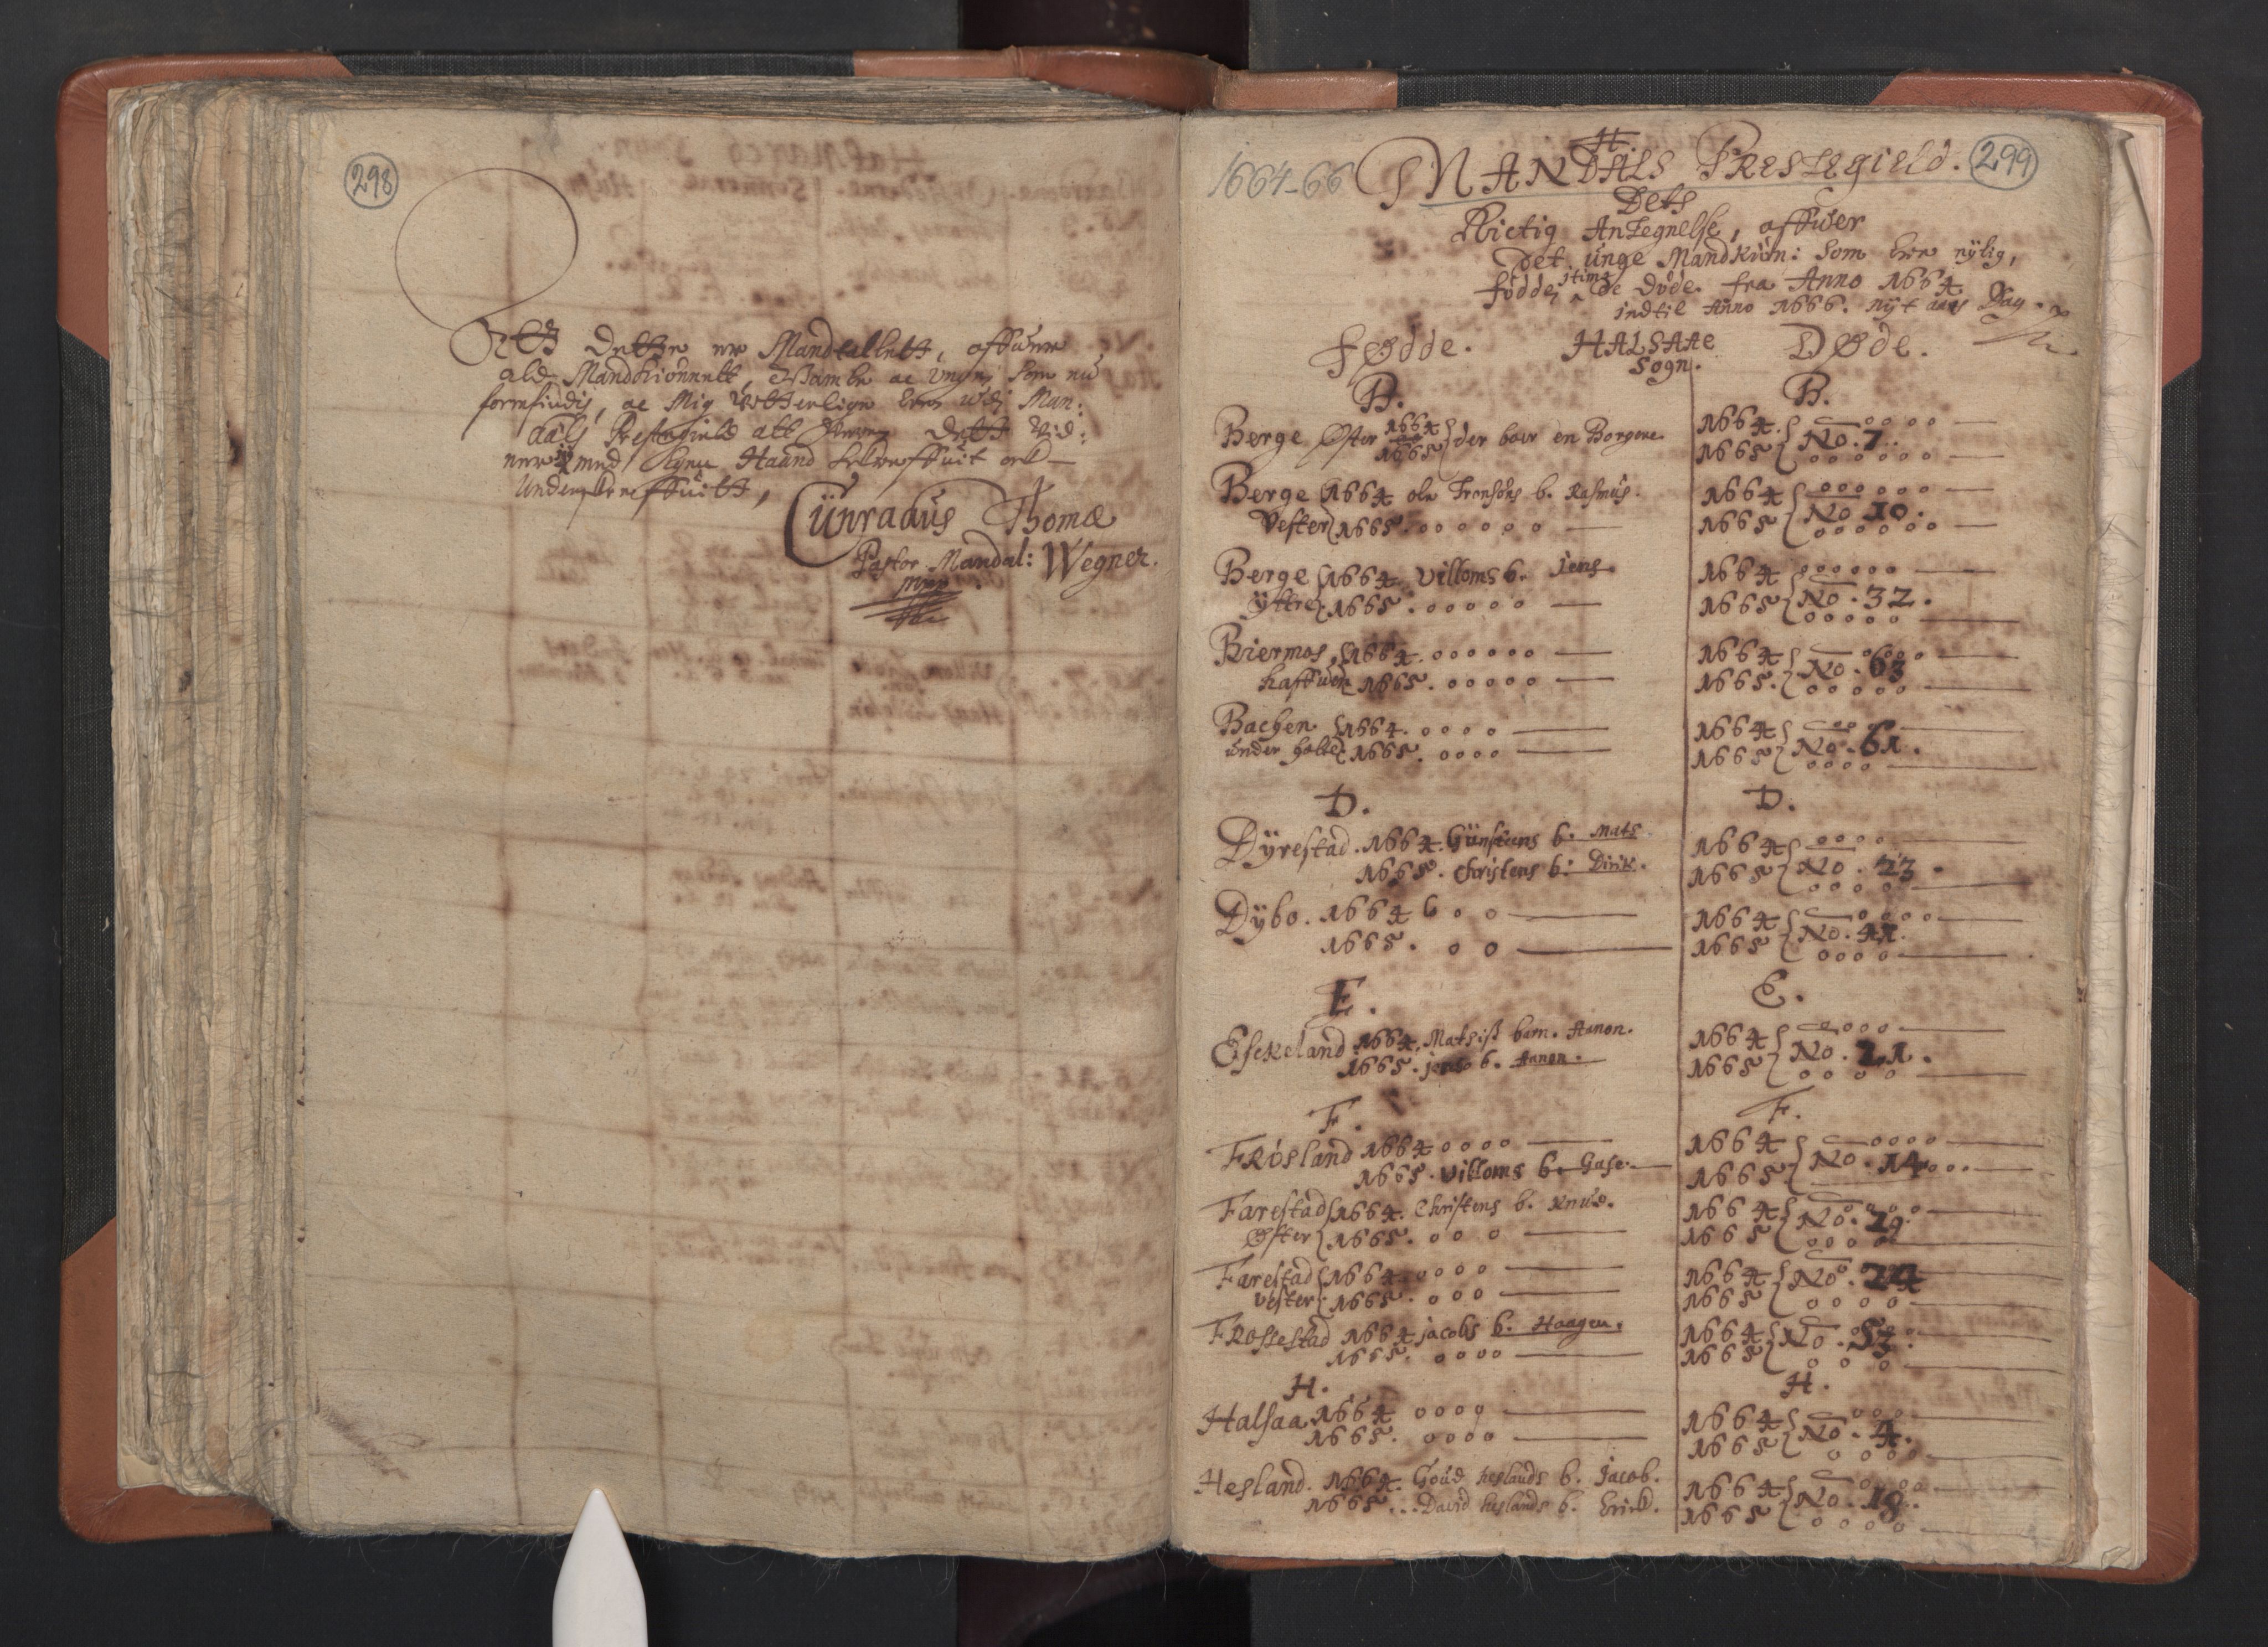 298
Att Dette er Mandtallett, offuer
ald Mandkiønnett, Gamle oc Unge, som nu
forefindis, oc Mig Vetterligen ere udj Man:
dals Prestegield att
med Egen Haand
Underskreffuitt,
Cünradus Thomæ
Pastor Mandal: Wegner.
mpp
1664-66 MANDALS PRESTEgield. 299
Dets
Rictig AnTegnelse, offuer
det unge Mandkiøn: som ere nylig,
fødde, item de Døde. fra Anno 1664
indtil Anno 1666. nyt aars Dag.
Fødde. HALSAAe Døde.
Sogn.
B. B.
Berge Øster 1664 1665 der boer en Borgere. 1664. 1665 No. 7. o o o o o o
Berge 1664 ole Tronsøns b. Rasmus. 1664 o o o o o o
Vester 1665. o o o o o o 1665 No 10. o o o o o o
Berge 1664. Villoms b. Jens 1664 o o o o o o
Yttre 1665. o o o o o 1665 No. 32. o o o o o
Biermos 1664. o o o o o o 1664
haffuen 1665. o o o o o 1665. No. 63 o o o o o
Bachen 1664. o o o o 1664
under holte 1665. o o o o 1665 No. 61. o o o o
D. D.
Dyrestad. 1664. Günstens b. Mats 1664 o o o o
1665. Christens b: Dirik. 1665 No. 23. o o o o
Dybo. 1664 o o o 1664 o o o o
1665. o o 1665 No. 41. o o o o
E. E.
Eskeland 1664. Mathiss barn. Aanon. 1664 o o o o
1665. b. Aanon. 1665 No. 21. o o o o
F. F.
FRøsland 1664 o o o o 1664 o o o o
1665. Villoms b. Gase. 1665 No. 14 o o o
Farestad 1664. Christens b. Knud. 1664
Øster 1665. o o o 1665 No. 29. o o o o
Farestad 1664. o o o o 1664
Vester 1665. o o o 1665 No. 24 o o o o
FRossestad 1664 jacobs b. Haagen. 1664
1665. o o o o 1665 No. o o o
H. H.
Halsaa 1664 o o o o 1664 o o o
1665. o o o o 1665 No. 4. o o o o
Hesland. 1664. Goud heslands b. Jacob. 1664
1665... David heslands b. Erick. 1665 No. 18. o o o o